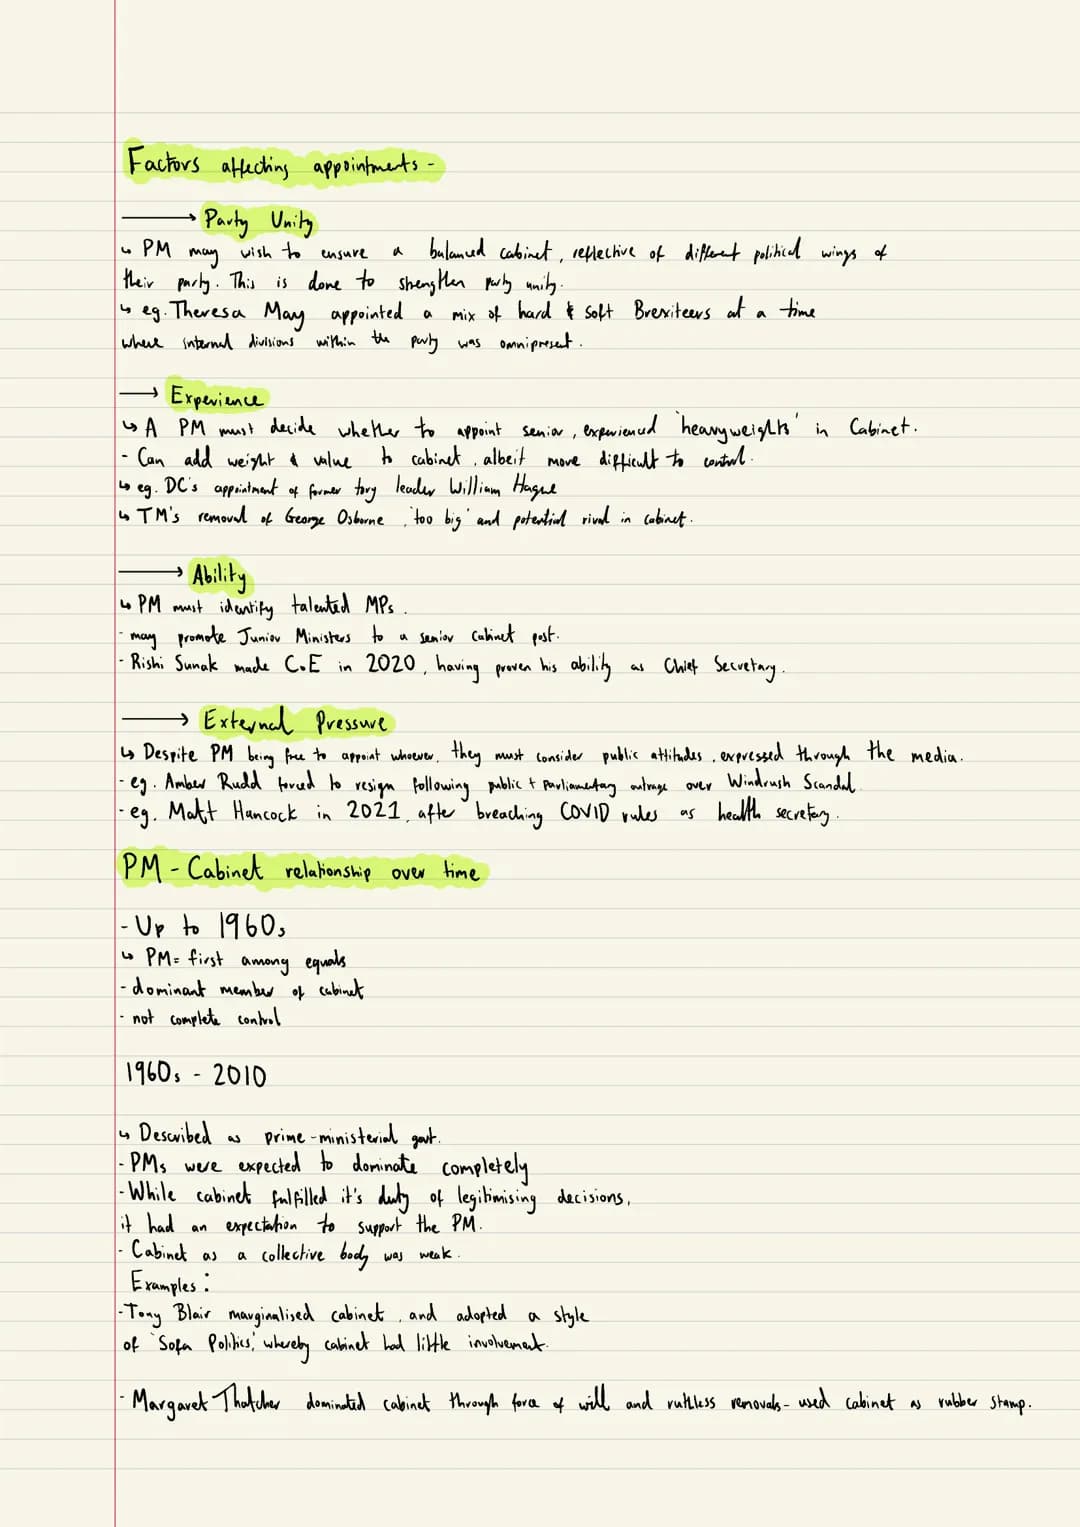 Factors affecting appointments -
→ Party Unity
↳ PM may wish to ensure a balanced cabinet, reflective of different political wings of
their party. This is done to strengthen party unity.
↳ eg. Theresa May appointed a mix of hard & soft Brexiteers at a time
where internal divisions within the party was omnipresent.
→ Experience
↳ A PM must decide whether to appoint senior, experienced 'heavyweights' in Cabinet.
- Can add weight & value to cabinet, albeit more difficult to control.
↳ eg. DC's appointment of former tory leader William Hague
↳ TM's removal of George Osborne, 'too big' and potential rival in cabinet.
→ Ability
↳ PM must identify talented MPs.
- may promote Junior Ministers to a senior cabinet post.
- Rishi Sunak made C.E in 2020, having proven his ability as Chief Secretary.
→ External Pressure
↳ Despite PM being free to appoint whoever, they must consider public attitudes, expressed through the media.
- eg. Amber Rudd forced to resign following public + Parliamentary outrage over Windrush Scandal.
- eg. Matt Hancock in 2021, after breaching COVID rules as health secretary.
PM - Cabinet relationship over time
- Up to 1960s
↳ PM = first among equals
- dominant member of cabinet
- not complete control
1960s - 2010
↳ Described as prime-ministerial govt.
- PMs were expected to dominate completely
- While cabinet fulfilled it's duty of legitimising decisions,
it had an expectation to support the PM.
- Cabinet as a collective body was weak.
Examples:
- Tony Blair marginalised cabinet, and adopted a style
of 'Sofa Politics,' whereby cabinet had little involvement.
- Margaret Thatcher dominated cabinet through force of will and ruthless removals - used cabinet as rubber stamp.